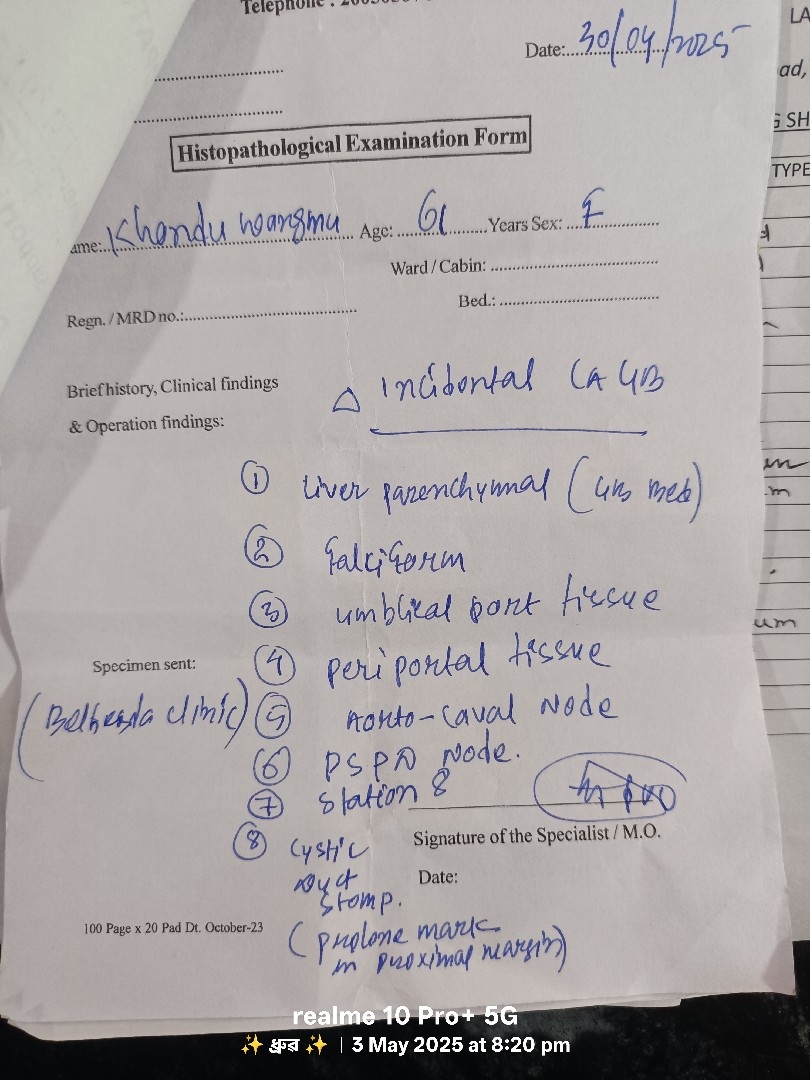 Telephone :
Date: 30/04/2025
Histopathological Examination Form
ame: Khandu Wangmu Age: 61 Years Sex: F
Ward / Cabin:
Bed.:
Regn. / MRD no.:
Brief history, Clinical findings
& Operation findings:
△ Incidental CA GB
① Liver parenchymal (GB Bed)
② Falciform
③ umblical port tissue
④ periportal tissue
Specimen sent:
(Bethesda clinic)
⑤ Aorto-caval Node
⑥ PSPD Node.
⑦ Station 8
⑧ Cystic
Duct
Stomp.
(prolone mark
in proximal margin)
Signature of the Specialist / M.O.
Date:
100 Page x 20 Pad Dt. October-23
LA
ad,
G SH
TYPE
um
realme 10 Pro+ 5G
✨ ধ্রুব ✨ | 3 May 2025 at 8:20 pm